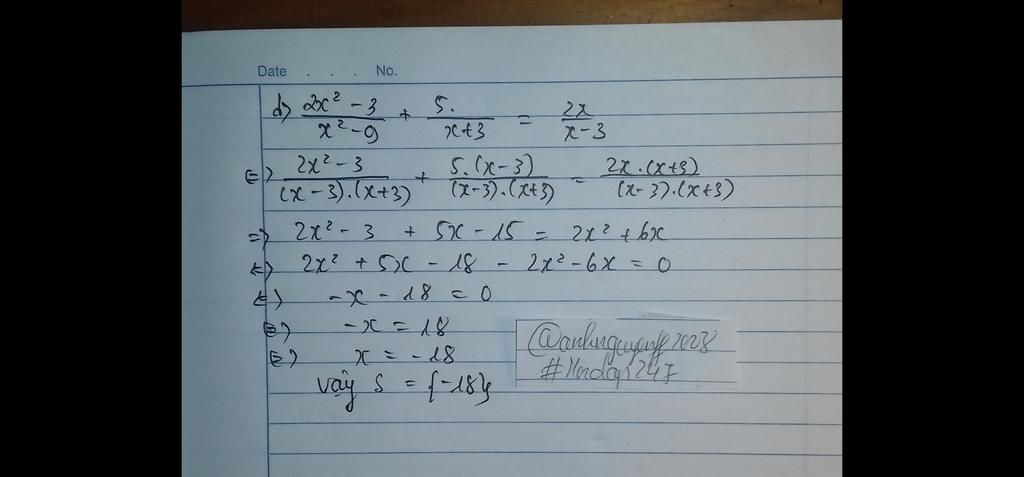 Date . . . No.
d) (2x² - 3)/(x² - 9) + 5./(x+3) = 2x/(x-3)
⇔) (2x² - 3)/((x-3).(x+3)) + 5.(x-3)/((x-3).(x+3)) = 2x.(x+3)/((x-3).(x+3))
=) 2x² - 3 + 5x - 15 = 2x² + 6x
⇔) 2x² + 5x - 18 - 2x² - 6x = 0
⇔) -x - 18 = 0
⇔) -x = 18
⇔) x = -18
vậy S = {-18}